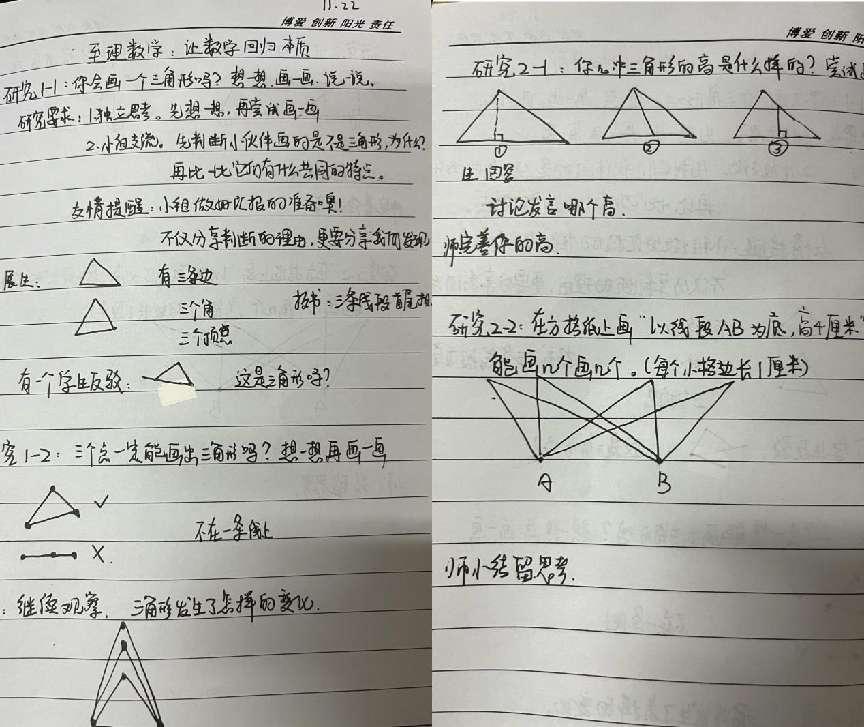 11.22
博爱 创新 阳光 责任
至理数学：让数学回归本质
研究1-1：你会画一个三角形吗？想一想，画一画，说一说。
研究要求：1.独立思考。先想一想，再尝试画一画
2.小组交流。先判断小伙伴画的是不是三角形，为什么？
再比一比它们有什么共同的特点。
友情提醒：小组做好汇报的准备噢！
不仅分享判断的理由，更要分享我们发现
展生：
有三条边
三个角
三个顶点
板书：三条线段首尾相
有一个学生反驳：
这是三角形吗？
究1-2：三个点一定能画出三角形吗？想一想再画一画
✓
不在一条线上
X
：继续观察，三角形发生了怎样的变化．
博爱 创新 阳
研究2-1：你心中三角形的高是什么样的？尝试
①
②
③
生回答
讨论发言哪个高．
师完善你的高．
研究2-2：在方格纸上画“以线段AB为底，高4厘米”
能画几个画几个。（每个小格边长1厘米）
A
B
师小结留思考．